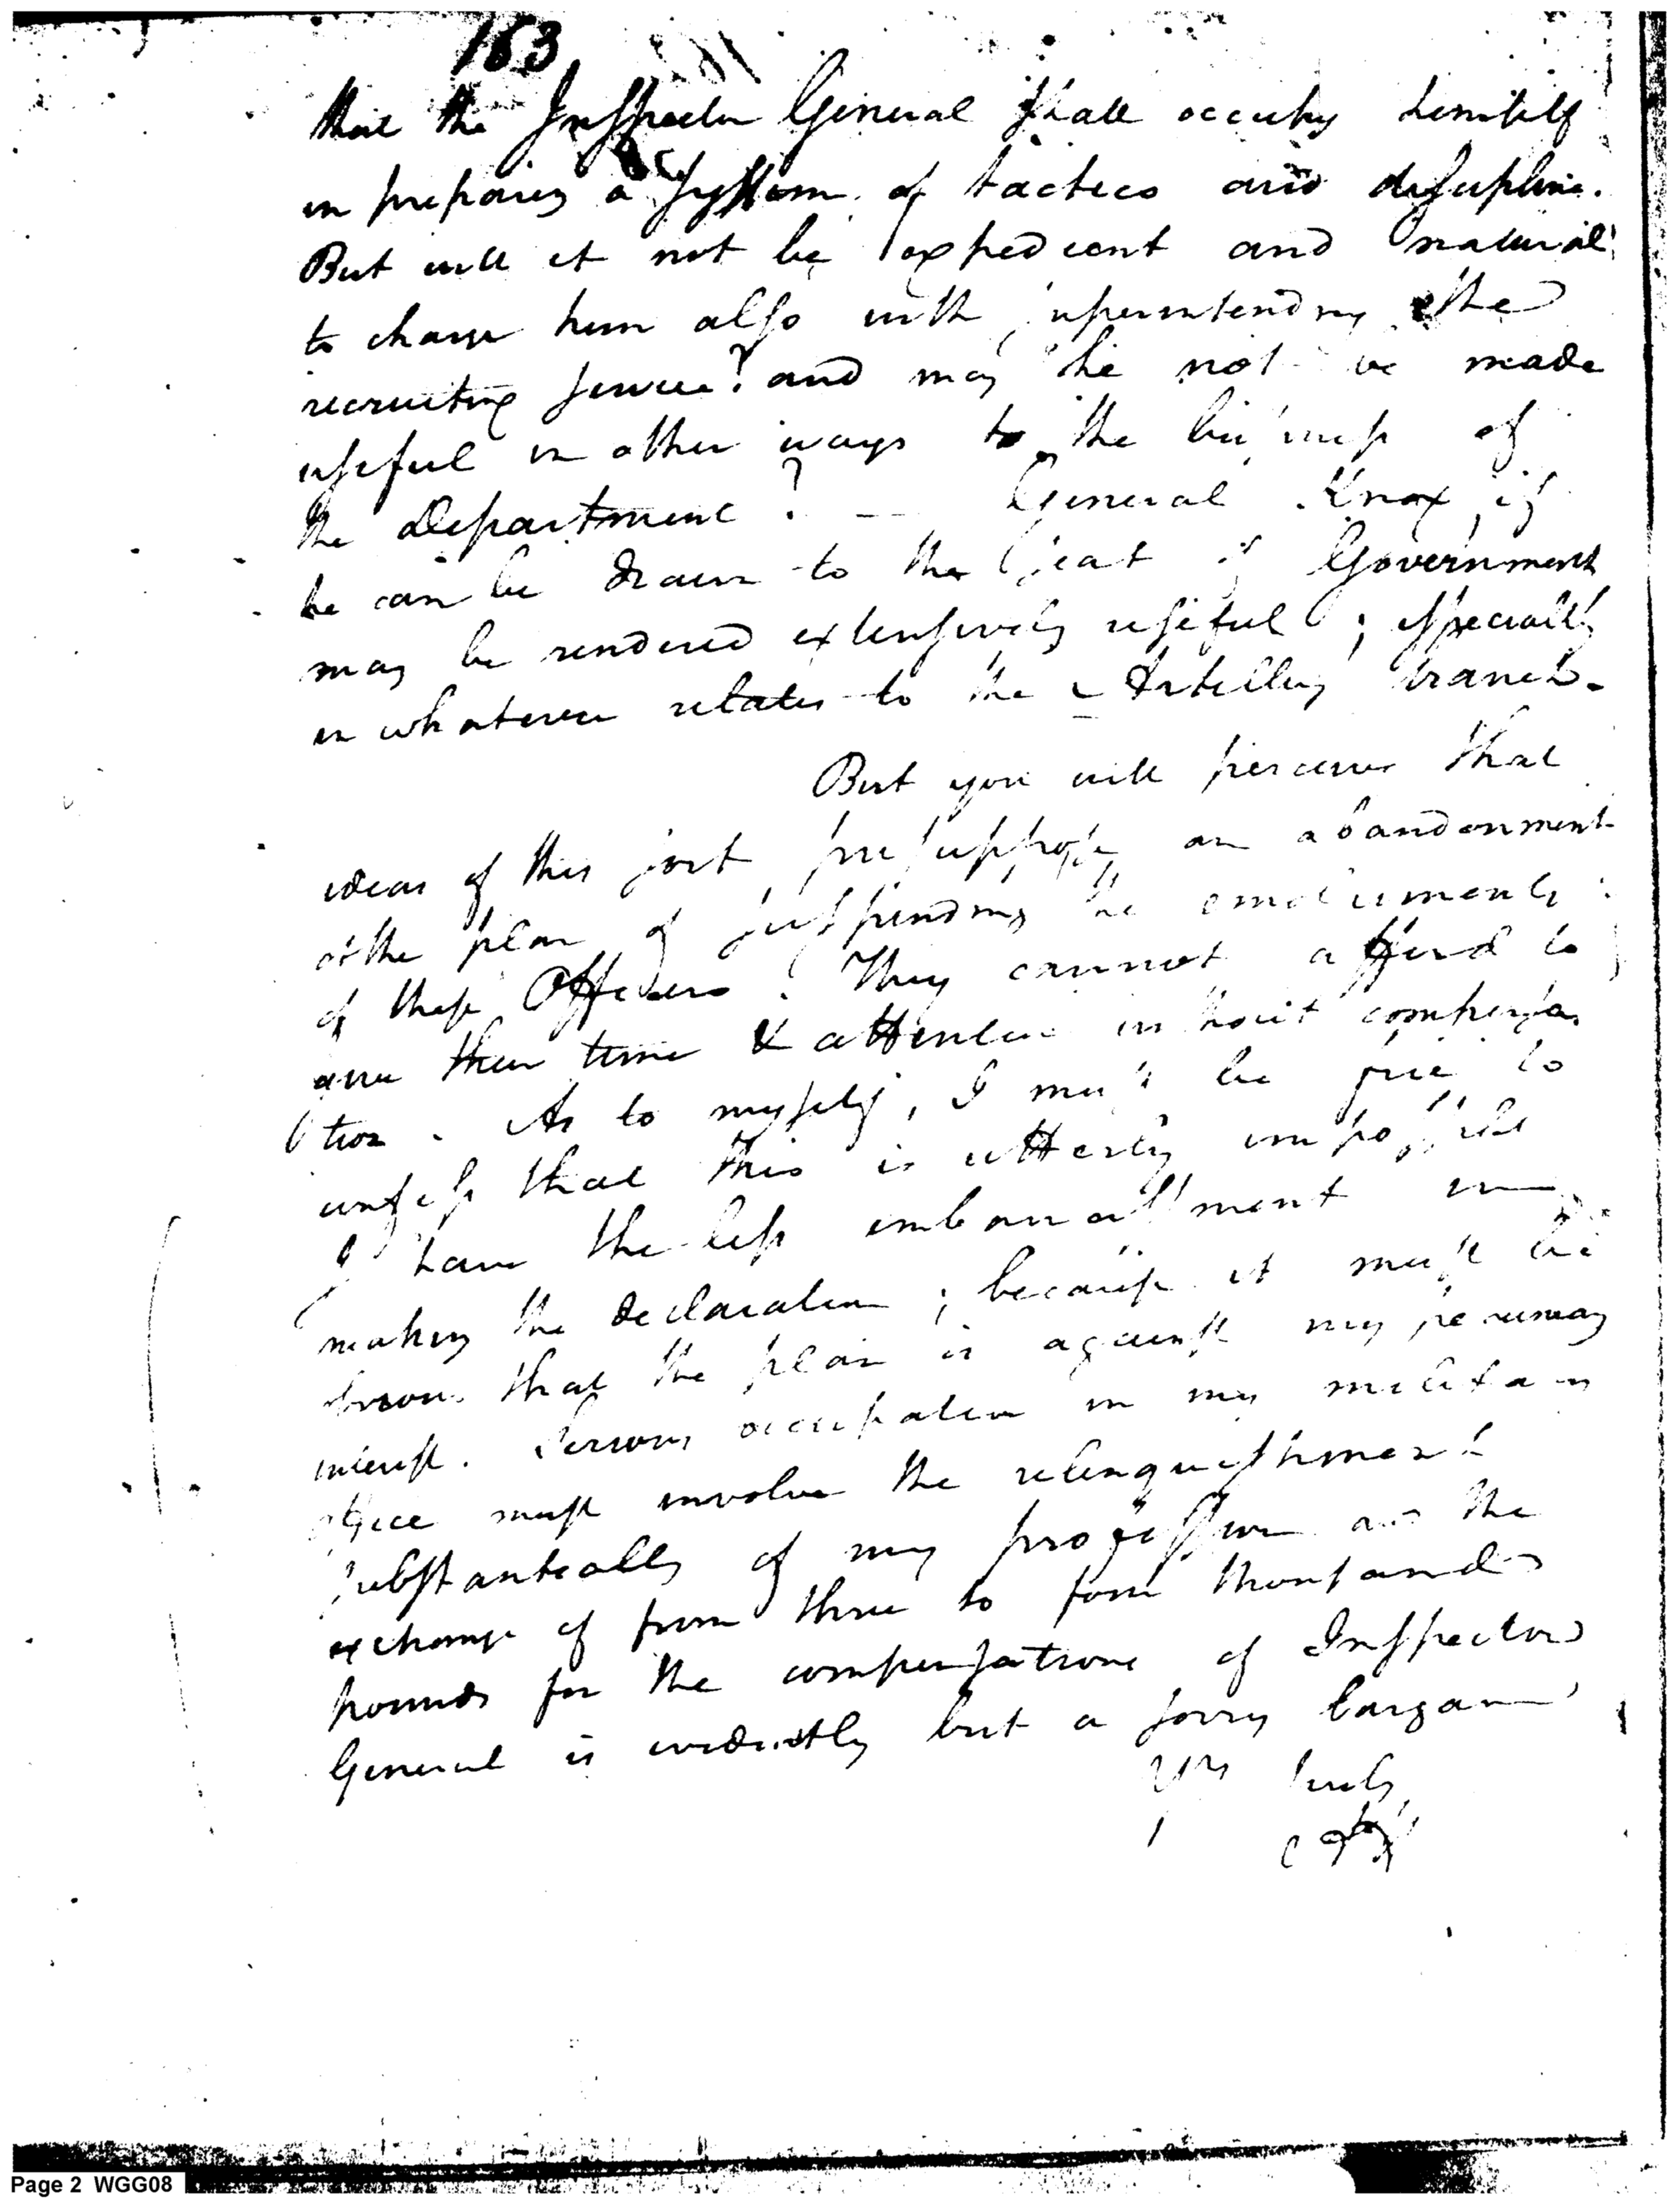 163
that the Inspector General shall occupy himself
in preparing a system of tactics and discipline.
But will it not be expedient and natural
to charge him also with superintending the
recruiting service? and may he not be made
useful in other ways to the business of
the Department? — General Knox, if
he can be drawn to the seat of Government
may be rendered extensively useful; especially
in whatever relates to the Artillery branch.
But you will perceive that
ideas of this sort presuppose an abandonment
of the plan of suspending the emoluments
of these Officers. They cannot afford to
give their time & attention without compensa
tion. As to myself, I must be free to
confess that this is utterly impossible
I have the less embarrassment in
making the declaration; because it must be
obvious that the plan is against my pecuniary
interest. Serious occupation in my military
office must involve the relinquishment
substantially of my profession and the
exchange of from three to four thousand
pounds for the compensations of Inspector
General is evidently but a sorry bargain
Yrs truly
AH
Page 2 WGG08